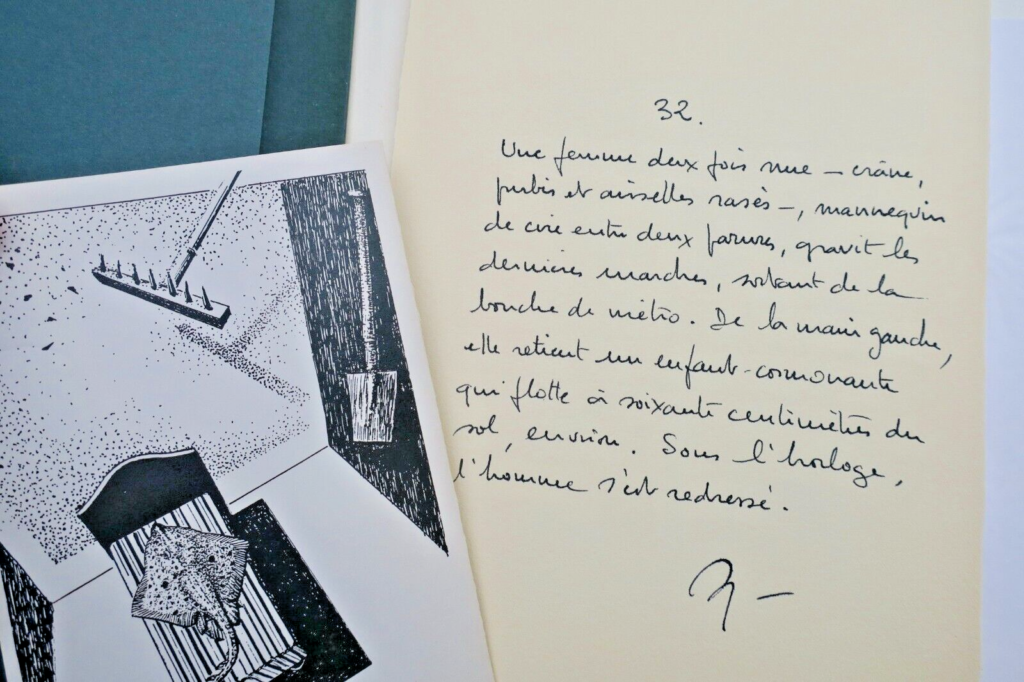 32.
Une femme deux fois nue – crâne,
pubis et aisselles rasés –, mannequin
de cire entre deux parures, gravit les
dernières marches, sortant de la
bouche de métro. De la main gauche,
elle retient un enfant-cormorante
qui flotte à soixante centimètres du
sol, environ. Sous l'horloge,
l'homme s'est redressé.